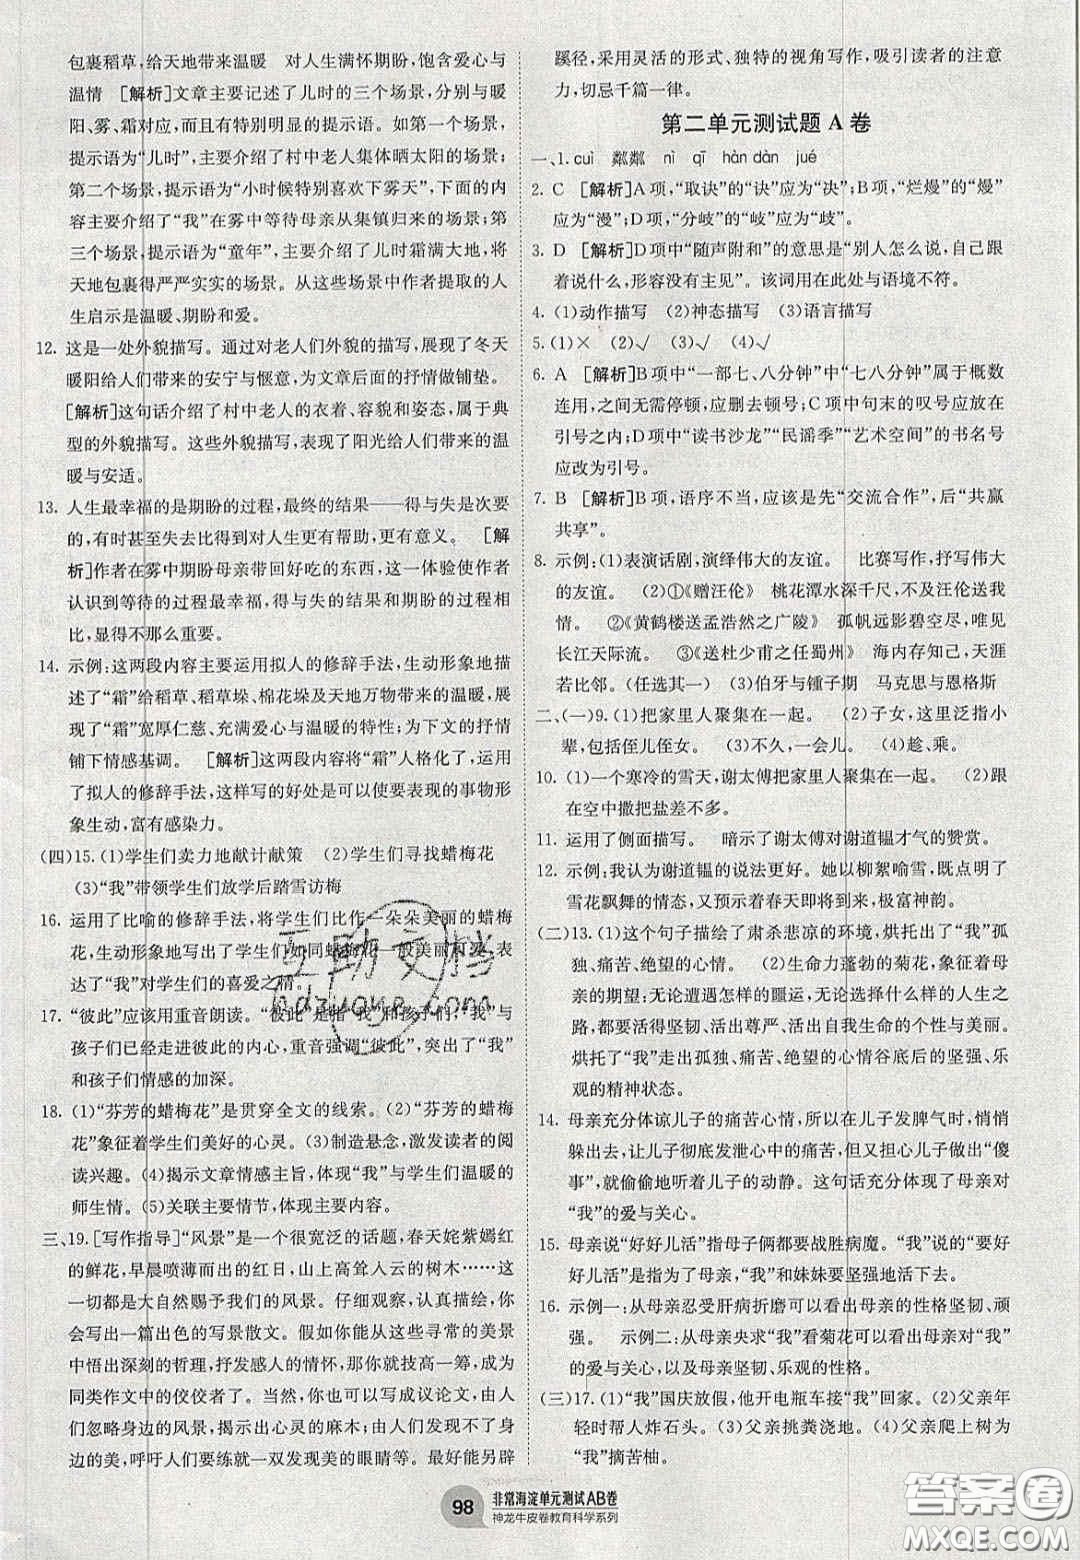 包裹稻草,给天地带来温暖　对人生满怀期盼,饱含爱心与
温情　[解析]文章主要记述了儿时的三个场景,分别与暖
阳、雾、霜对应,而且有很明显的提示语。如第一个场景,
提示语为“儿时”,主要介绍了村中老人集体晒太阳的场景;
第二个场景,提示语为“小时候特别喜欢下雾天”,下面的内
容主要介绍了“我”在雾中等待母亲从集镇归来的场景;第
三个场景,提示语为“童年”,主要介绍了儿时霜满大地,将
天地包裹得严严实实的场景。从这些场景中作者提取的人
生启示是温暖、期盼和爱。
12. 这是一处外貌描写。通过对老人们外貌的描写,展现了冬天
暖阳给人们带来的安宁与惬意,为文章后面的抒情做铺垫。
[解析]这句话介绍了村中老人的衣着、容貌和姿态,属于典
型的外貌描写。这些外貌描写,表现了阳光给人们带来的温
暖与安适。
13. 人生最幸福的是期盼的过程,最终的结果——得与失是次要
的,有时甚至失去比得到对人生更有帮助,更有意义。　[解
析]作者在雾中期盼母亲带回好吃的东西,这一体验使作者
认识到等待的过程最幸福,得与失的结果和期盼的过程相
比,显得不那么重要。
14. 示例:这两段内容主要运用拟人的修辞手法,生动形象地描
述了“霜”给稻草、稻草垛、棉花垛及天地万物带来的温暖,
展现了“霜”宽厚仁慈、充满爱心与温暖的特性;为下文的抒情
铺下情感基调。　[解析]这两段内容将“霜”人格化了,运用
了拟人的修辞手法,这样写的好处是可以使描写的事物形
象生动,富有感染力。
(四)15.(1)学生们卖力地献计献策　(2)学生们寻找蜡梅花
(3)“我”带领学生们放学后踏雪访梅
16. 运用了比喻的修辞手法,将学生们比作一朵朵美丽的蜡梅
花,生动形象地写出了学生们如同蜡梅花一般美丽可爱,表
达了“我”对学生们的喜爱之情。
17. “彼此”应该用重音朗读。“彼此”是指“我”和孩子们;“我”与
孩子们已经走进彼此的内心,重音强调“彼此”,突出了“我”
和孩子们情感的加深。
18. (1)“芬芳的蜡梅花”是贯穿全文的线索。(2)“芬芳的蜡梅
花”象征着学生们美好的心灵。(3)制造悬念,激发读者的阅
读兴趣。(4)揭示文章情感主旨,体现“我”与学生们温暖的
师生情。(5)关联主要情节,体现主要内容。
三、19.[写作指导]“风景”是一个很宽泛的话题,春天姹紫嫣红
的鲜花,早晨喷薄而出的红日,山上高耸入云的树木……这
一切都是大自然赐予我们的风景。仔细观察,认真描绘,你
会写出一篇出色的写景散文。假如你能从这些寻常的美景
中悟出深刻的哲理,抒发感人的情怀,就技高一筹,成为
同类作文中的佼佼者了。当然,你可以写成议论文,提醒人
们忽略身边的风景,显示出心灵的麻木;人们发现不了身
边的美,呼吁人们要练就一双发现美的眼睛等。最好能另辟
蹊径,采用灵活的形式、独特的视角写作,吸引读者的注意
力,切忌千篇一律。
第二单元测试题 A 卷
一、1. cuì　粼粼　nì　qī　hàn dàn　jué
2. C　[解析]A项,“取诀”的“诀”应为“决”;B项,“烂熳”的“熳”
应为“漫”;D项,“分岐”的“岐”应为“歧”。
3. D　[解析]D项中“随声附和”的意思是“别人怎么说,自己跟
着说什么,形容没有主见”。该词用在此处与语境不符。
4. (1)动作描写　(2)神态描写　(3)语言描写
5. (1)×　(2)√　(3)√　(4)√
6. A　[解析]B项中“一部七、八分钟”中“七八分钟”属于概数
连用,之间无需停顿,应删去顿号;C项中句末的叹号应放在
引号之内;D项中“读书沙龙”“民谣季”“艺术空间”的书名号
应改为引号。
7. B　[解析]B项,语序不当,应该是先“交流合作”,后“共赢
共享”。
8. 示例:(1)表演话剧,演绎伟大的友谊。　比赛写作,抒写伟大
的友谊。　(2)①《赠汪伦》　桃花潭水深千尺,不及汪伦送我
情。　②《黄鹤楼送孟浩然之广陵》　孤帆远影碧空尽,唯见
长江天际流。　③《送杜少甫之任蜀州》　海内存知己,天涯
若比邻。(任选其一)　(3)伯牙与锺子期　马克思与恩格斯
二、(一)9.(1)把家里人聚集在一起。　(2)子女,这里泛指小
辈,包括侄儿侄女。　(3)不久,一会儿。　(4)趁、乘。
10. (1)一个寒冷的雪天,谢太傅把家里人聚集在一起。　(2)跟
在空中撒把盐差不多。
11. 运用了侧面描写。　暗示了谢太傅对谢道韫才气的赞赏。
12. 示例:我认为谢道韫的说法更好。她以柳絮喻雪,既写出了
雪花飘舞的情态,又预示着春天即将到来,极富神韵。
(二)13.(1)这个句子描绘了肃杀悲凉的环境,烘托出了“我”孤
独、痛苦、绝望的心情。　(2)生命力蓬勃的菊花,象征着母亲
的期望;无论遭遇怎样的噩运,无论选择什么样的人生之
路,都要活得坚韧、活出尊严、活出自我生命的个性与美丽。
烘托了“我”走出孤独、痛苦、绝望的心情谷底后的坚强、乐
观的精神状态。
14. 母亲充分体谅儿子的痛苦心情,所以在儿子发脾气时,悄悄
躲出去,让儿子彻底发泄心中的痛苦,但又害怕儿子做“傻
事”,就偷偷地注意着儿子的动静。这句话充分体现了母亲对
“我”的爱与关心。
15. 母亲说“好好儿活”指母子俩都要战胜病魔。“我”说的“要好
好儿活”是指为了母亲,“我”和妹妹要坚强地活下去。
16. 示例一:从母亲忍受肝病折磨可以看出母亲的性格坚韧、顽
强。　示例二:从母亲央求“我”看菊花可以看出母亲对“我”
的爱与关心,以及母亲坚韧、乐观的性格。
(三)17.(1)“我”国庆放假,他开电瓶车接“我”回家。(2)父亲年
轻时帮人炸石头。(3)父亲挑粪浇地。(4)父亲爬上树为
“我”摘苦柚。
互助文档
hdzuoye.com
98
非常海淀单元测试AB卷
神龙牛皮卷教育科学系列
答案圈
MXQE.COM